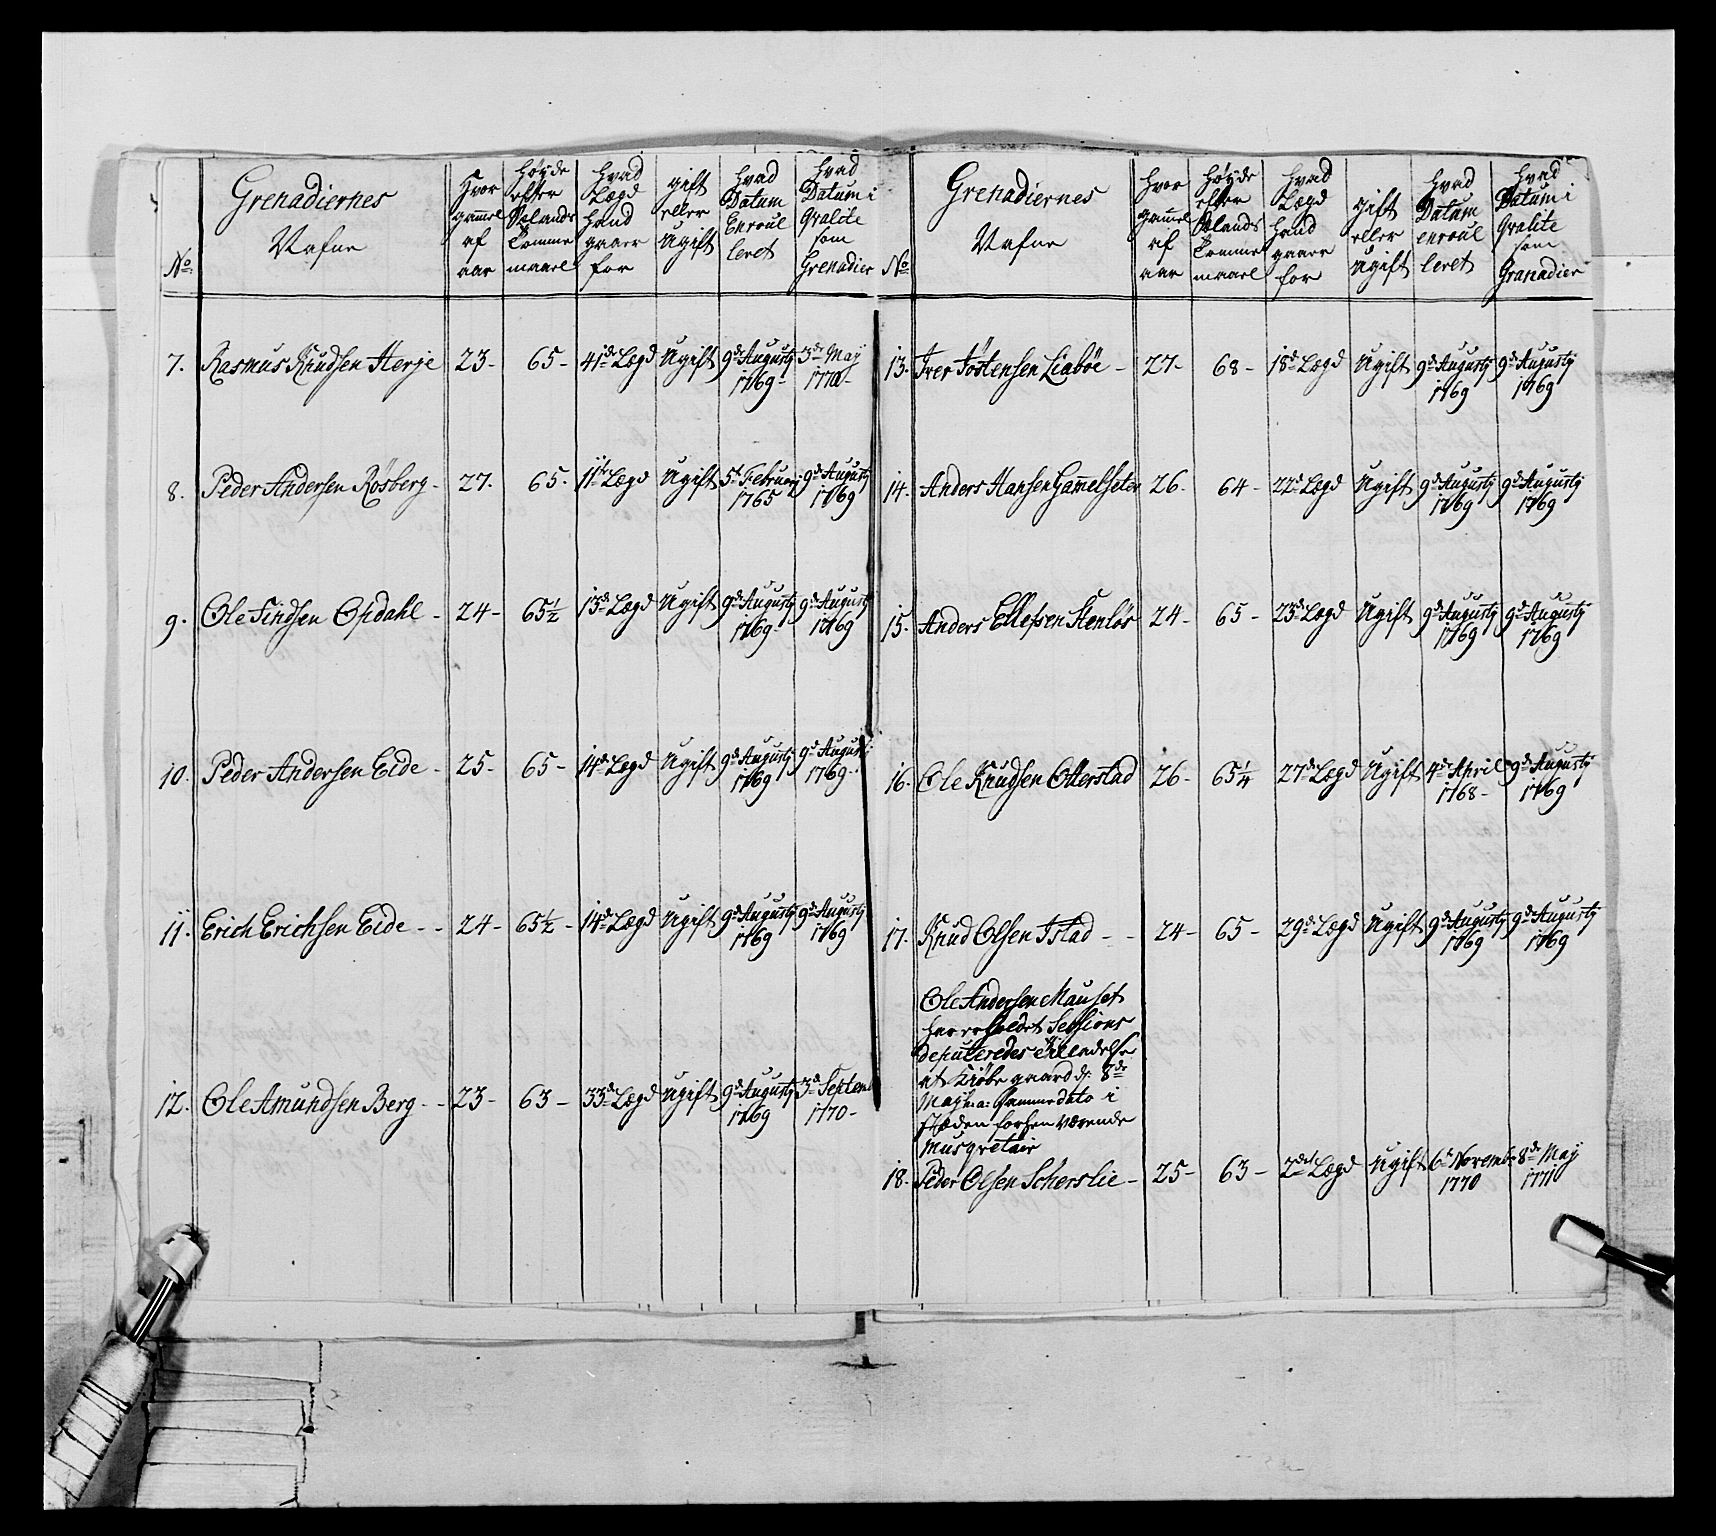 No.
Grenadiernes
Nafne
Hvor
gammel
af
aar
Høyde
efter
Sælands
Tomme
maael
Hvad
Lægd
Hand
gaaer
for
gift
eller
Ugift
Hvad
Datum
Enroul
leret
Hvad
Datum i
Qvalite
som
Grenadier
7. Rasmus Knudsen Herje 23- 65- 41de Lægd Ugift 9de Augusty 1769- 3de May 1770-
8. Peder Andersen Rösberg- 27. 65. 11te Lægd Ugift 5te February 1765 9de Augusty 1769
9. Ole Findsen Opdahl- 24- 65½ 13de Lægd Ugift 9de Augusty 1769- 9de Augusty 1769
10. Peder Andersen Eide- 25- 65- 14de Lægd Ugift 9de Augusty 1769 9de Augusti 1769-
11. Erich Erichsen Eide-- 24- 65½- 14de Lægd Ugift 9de Augusty 1769 9de Augusty 1769
12. Ole Amundsen Berg-- 23- 63- 33de Lægd Ugift 9de Augusty 1769 3de Septem 1770-
No.
Grenadiernes
Nafne
Hvor
gammel
af
aar
Høyde
efter
Sælands
Tomme
maael
Hvad
Lægd
Hand
gaaer
for
gift
eller
Ugift
Hvad
Datum
enroul
leret
Hvad
Datum i
Qvalite
som
Granadier
13. Iver Jöstensen Liaböe- 27- 68- 18de Lægd Ugift 9de Augusty 1769 9de Augusty 1769
14. Anders Hansen Gammelseter 26- 64- 22de Lægd Ugift 9de Augusty 1769 9de Augusty 1769
15. Anders Ellefsen Stenlös 24- 65- 23de Lægd Ugift 9de Augusty 1769 9de Augusty 1769
16. Ole Knudsen Otterstad 26- 65¼ 27de Lægd Ugift 4de April 1768- 9de Augusty 1769
17. Knud Olsen Istad-- 24- 65- 29de Lægd Ugift 9de Augusty 1769 9de Augusty 1769
Ole Andersen Mauset
har erholdet Sessions
deputeredes tilladelse
at Kiöbe gaard d: 8de
May h:a: sammedato i
stæden forhenværende
Musqvetair
18. Peder Olsen Scherslie- 25- 63- 2den Lægd Ugift 6te Novembr 1770 8de May 1771